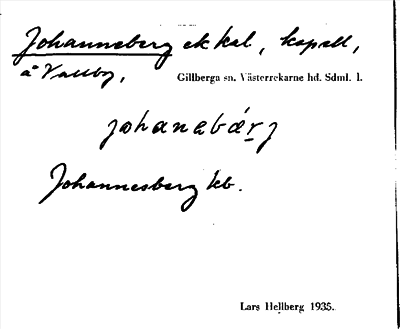 Johanneberg ek kal, kapell,
å Vallby,
Gillberga sn. Västerrekarne hd. Sdml. l.
johanabárj
Johannesberg kb.
Lars Hellberg 1935.